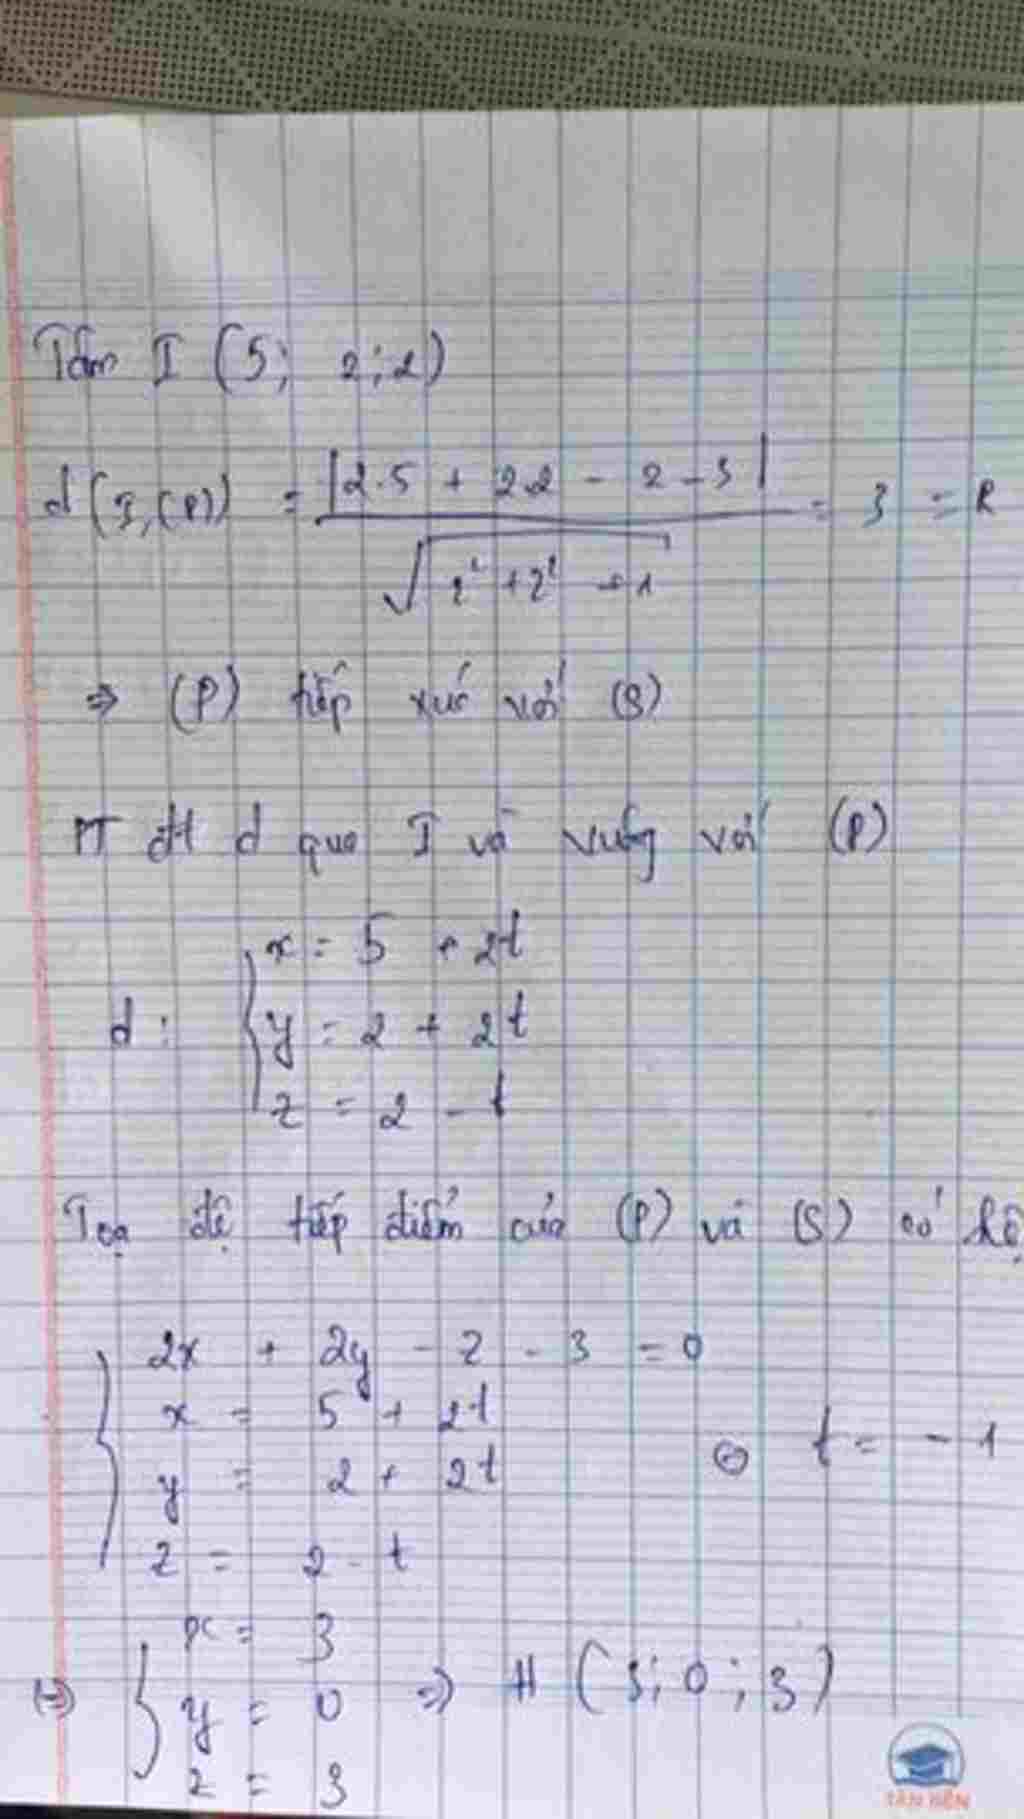 Tâm I (5; 2; 2)
d(I,(P)) = |2.5 + 2.2 - 2 - 3| / √(2² + 2² + 1) = 3 = R
⇒ (P) tiếp xúc với (S)
PT đt d qua I và vuông với (P)
d: { x = 5 + 2t
y = 2 + 2t
z = 2 - t
Tọa độ tiếp điểm của (P) và (S) có hệ
{ 2x + 2y - z - 3 = 0
x = 5 + 2t
y = 2 + 2t ⇔ t = -1
z = 2 - t
⇔ { x = 3
y = 0 ⇒ H (3; 0; 3)
z = 3
TÂN BIÊN